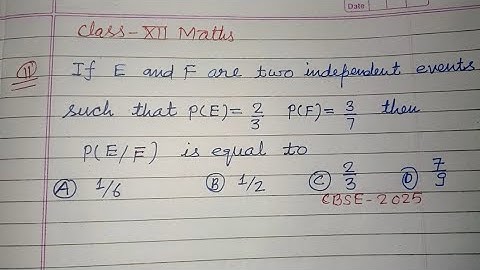 Date
Class-XII Maths
11 If E and F are two independent events
such that P(E)=2/3 P(F)=3/7 then
P(E/F̅) is equal to
(A) 1/6 (B) 1/2 (C) 2/3 (D) 7/9
CBSE-2025